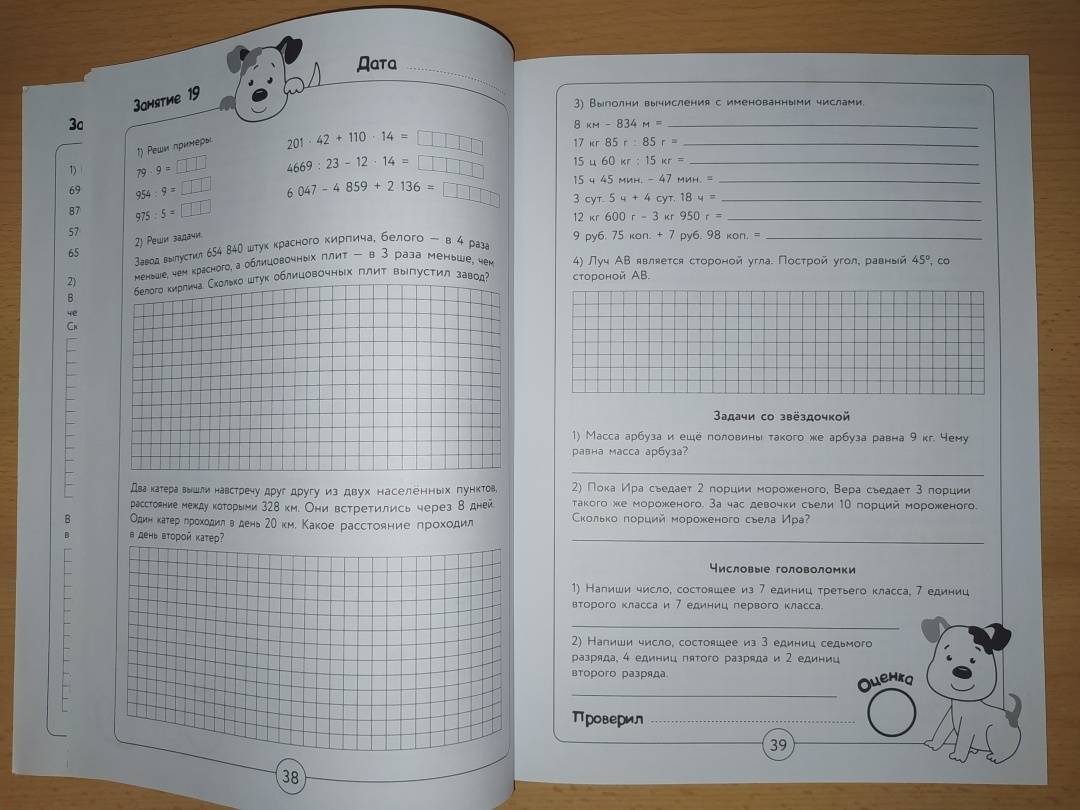 За
1)
69
87
57
65
2)
В
че
Ск
В
в
Занятие 19
Дата
1) Реши примеры.
79 · 9 =
954 : 9 =
975 : 5 =
201 · 42 + 110 · 14 =
4669 : 23 – 12 · 14 =
6 047 – 4 859 + 2 136 =
2) Реши задачи.
Завод выпустил 654 840 штук красного кирпича, белого — в 4 раза
меньше, чем красного, а облицовочных плит — в 3 раза меньше, чем
белого кирпича. Сколько штук облицовочных плит выпустил завод?
Два катера вышли навстречу друг другу из двух населённых пунктов,
расстояние между которыми 328 км. Они встретились через 8 дней.
Один катер проходил в день 20 км. Какое расстояние проходил
в день второй катер?
38
3) Выполни вычисления с именованными числами.
8 км – 834 м =
17 кг 85 г : 85 г =
15 ц 60 кг : 15 кг =
15 ч 45 мин. – 47 мин. =
3 сут. 5 ч + 4 сут. 18 ч =
12 кг 600 г – 3 кг 950 г =
9 руб. 75 коп. + 7 руб. 98 коп. =
4) Луч АВ является стороной угла. Построй угол, равный 45°, со
стороной АВ.
Задачи со звёздочкой
1) Масса арбуза и ещё половины такого же арбуза равна 9 кг. Чему
равна масса арбуза?
2) Пока Ира съедает 2 порции мороженого, Вера съедает 3 порции
такого же мороженого. За час девочки съели 10 порций мороженого.
Сколько порций мороженого съела Ира?
Числовые головоломки
1) Напиши число, состоящее из 7 единиц третьего класса, 7 единиц
второго класса и 7 единиц первого класса.
2) Напиши число, состоящее из 3 единиц седьмого
разряда, 4 единиц пятого разряда и 2 единиц
второго разряда.
Оценка
Проверил
39